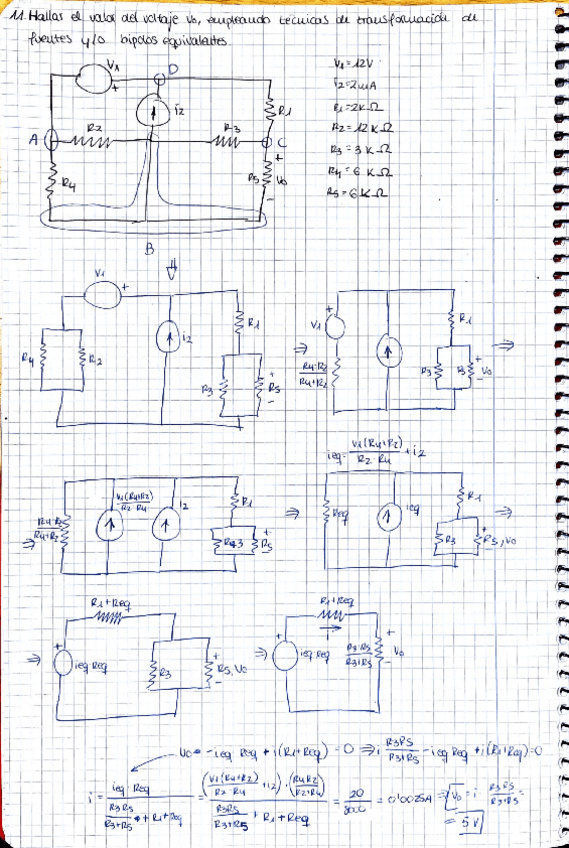 11. Hallar el valor del voltaje Vo, empleando técnicas de transformación de
fuentes y/o bipolos equivalentes.
V1
+
D
i2
R1
A
R2
R3
C
R4
R5
+
Vo
-
B
V1=12V
i2=2mA
R1=2KΩ
R2=12KΩ
R3=3KΩ
R4=6KΩ
R5=6KΩ
⇓
V1
+
R4
R2
i2
R1
R3
+
R5
-
⇒
V1
+
R4·R2
R4+R2
R1
R3
R5
+
Vo
-
⇒
⇒
R4·R2
R4+R2
V1(R4+R2)
R2·R4
i2
R1
R3
+
R5
-
⇒
ieq = V1(R4+R2) / R2·R4 + i2
Req
ieq
R1
R3
+
R5, Vo
-
⇒
⇒
R1+Req
+
ieq Req
R3
+
R5, Vo
-
⇒
R1+Req
i
+
ieq Req
R3·R5
R3+R5
+
Vo
-
Vo - ieq Req + i(R1+Req) = 0 ⇒ i R3R5 / R3+R5 - ieq Req + i(R1+Req) = 0
i = ieq·Req / (R3R5 / R3+R5 + R1+Req) = (V1(R4+R2) / R2·R4 + i2)·(R4R2 / R2+R4) / (R3R5 / R3+R5 + R1+Req) = 20 / 8000 = 0'0025A ⇒ Vo = i · R3R5 / R3+R5 =
= 5V